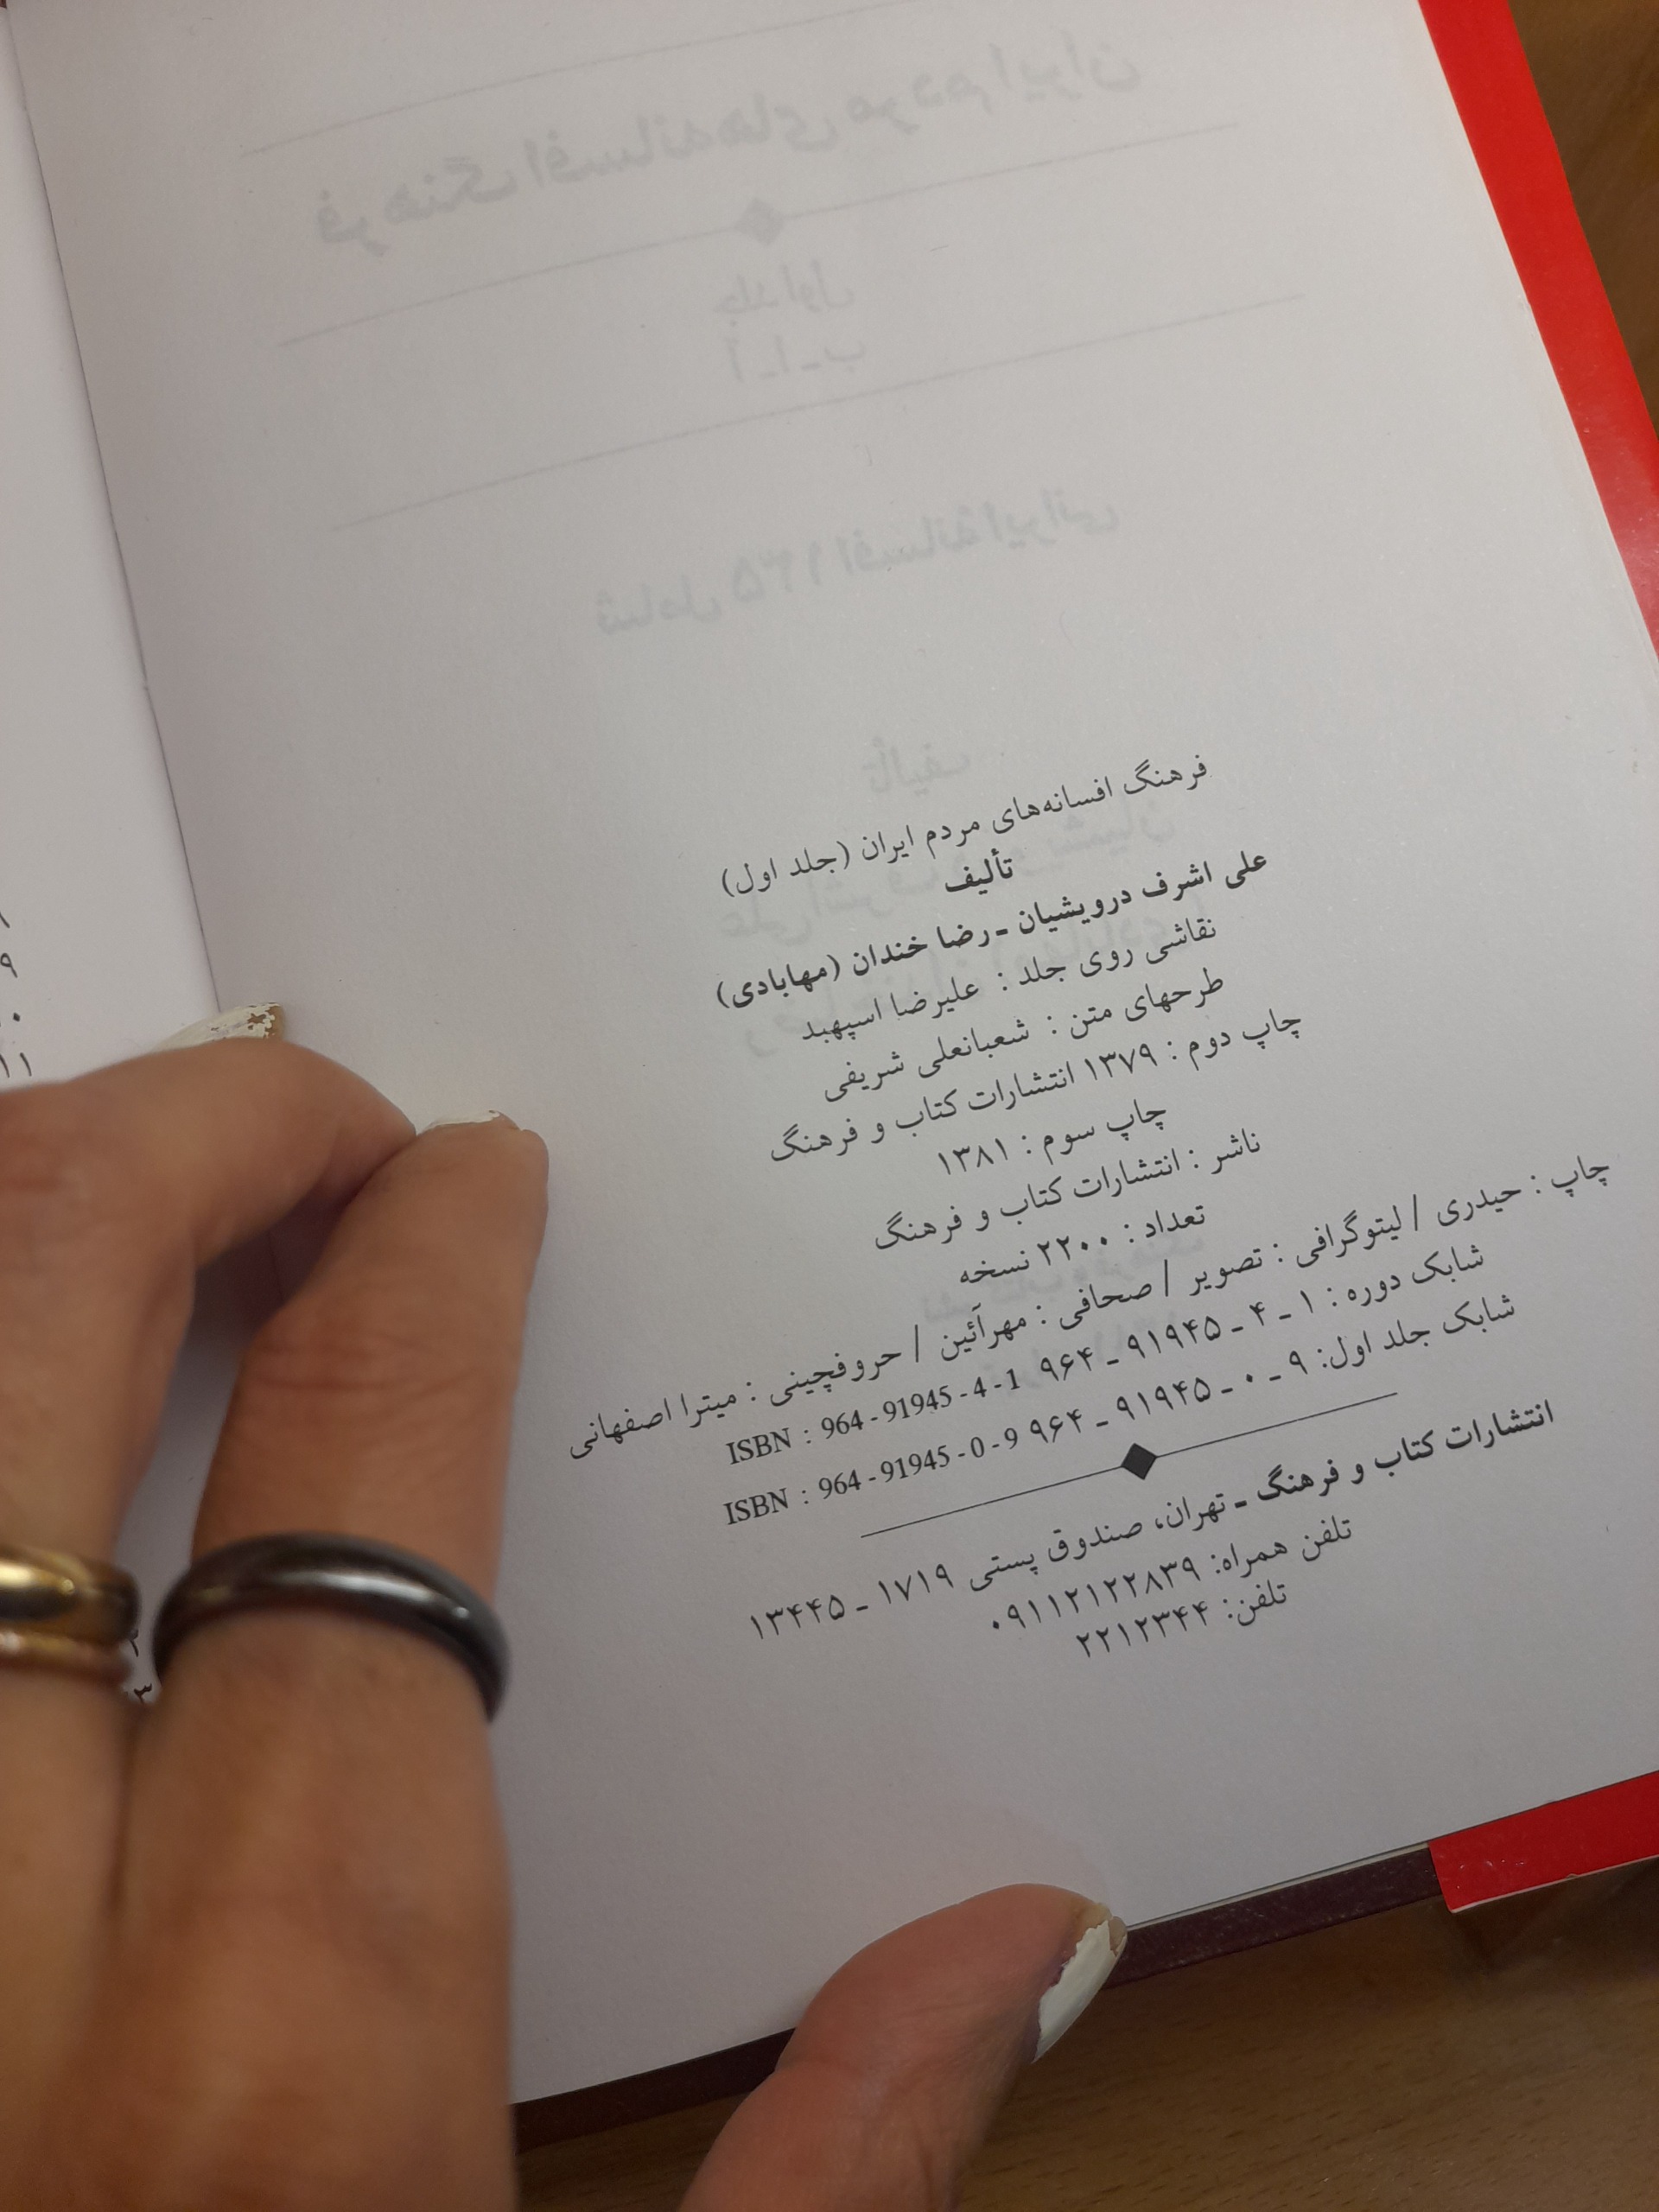 فرهنگ افسانه‌های مردم ایران
جلد اول
آ ـ ا ـ ب
شامل ۱۳۵ افسانهٔ ایرانی
تألیف
فرهنگ افسانه‌های مردم ایران (جلد اول)
تألیف
علی اشرف درویشیان ـ رضا خندان (مهابادی)
نقاشی روی جلد : علیرضا اسپهبد
طرحهای متن : شعبانعلی شریفی
چاپ دوم : ۱۳۷۹ انتشارات کتاب و فرهنگ
چاپ سوم : ۱۳۸۱
ناشر : انتشارات کتاب و فرهنگ
تعداد : ۲۲۰۰ نسخه
چاپ : حیدری / لیتوگرافی : تصویر / صحافی : مهرآئین / حروفچینی : میترا اصفهانی
شابک دوره : ۱ ـ ۴ ـ ۹۱۹۴۵ ـ ۹۶۴ ISBN : 964 - 91945 - 4 - 1
شابک جلد اول: ۹ ـ ۰ ـ ۹۱۹۴۵ ـ ۹۶۴ ISBN : 964 - 91945 - 0 - 9
انتشارات کتاب و فرهنگ ـ تهران، صندوق پستی ۱۷۱۹ ـ ۱۳۴۴۵
تلفن همراه: ۰۹۱۱۲۱۲۲۸۳۹
تلفن: ۲۲۱۲۳۴۴